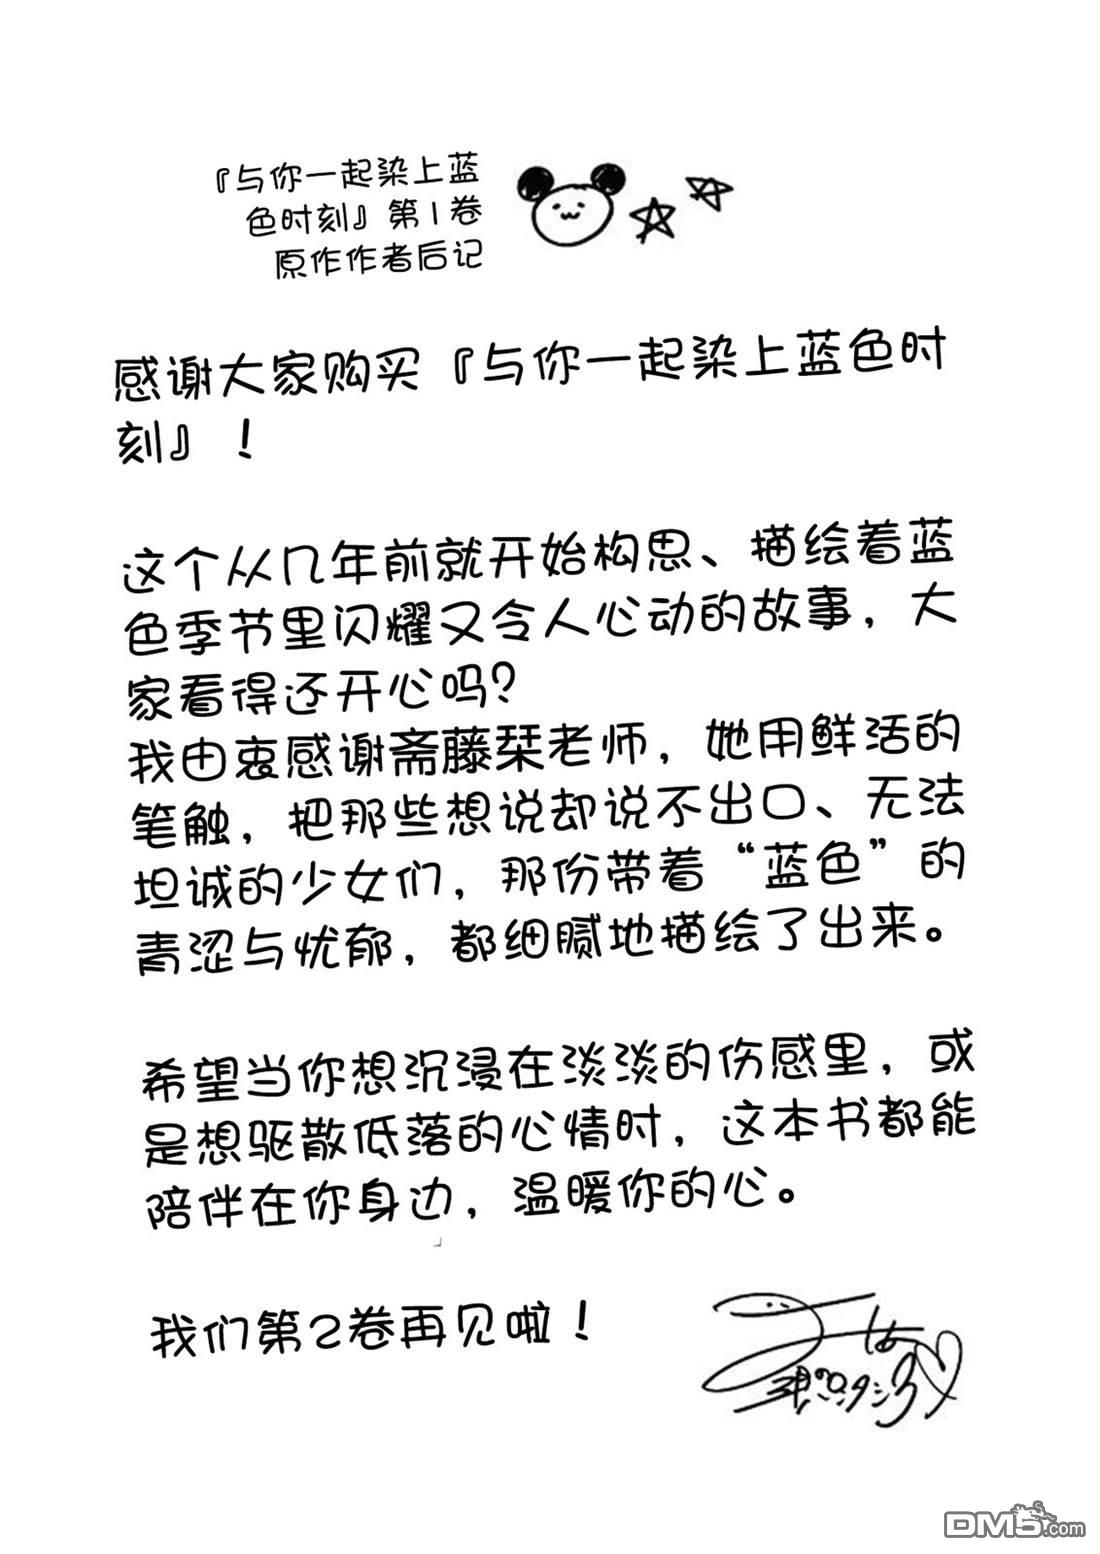 『与你一起染上蓝
色时刻』第1卷
原作作者后记
感谢大家购买『与你一起染上蓝色时
刻』！
这个从几年前就开始构思、描绘着蓝
色季节里闪耀又令人心动的故事，大
家看得还开心吗？
我由衷感谢斋藤栞老师，她用鲜活的
笔触，把那些想说却说不出口、无法
坦诚的少女们，那份带着“蓝色”的
青涩与忧郁，都细腻地描绘了出来。
希望当你想沉浸在淡淡的伤感里，或
是想驱散低落的心情时，这本书都能
陪伴在你身边，温暖你的心。
我们第2卷再见啦！
DM5.com